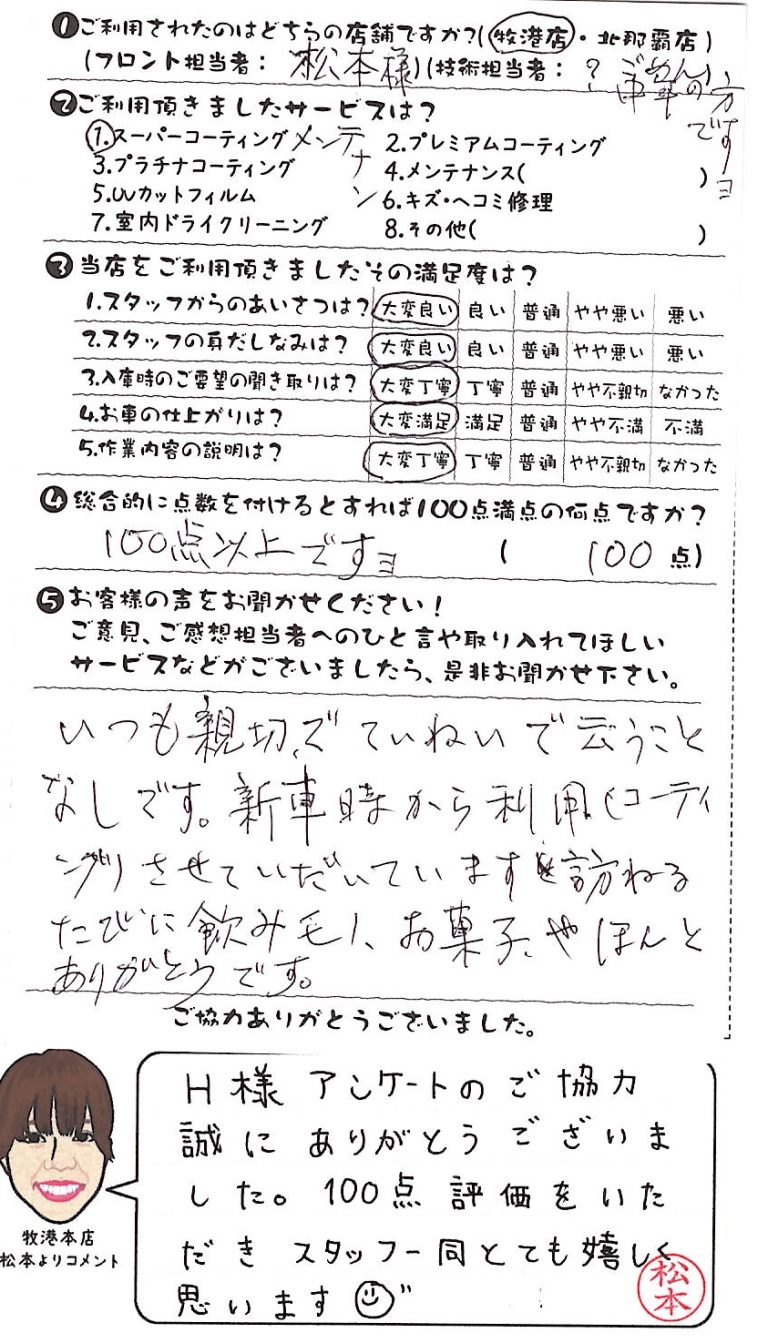 ❶ご利用されたのはどちらの店舗ですか?(牧港店・北那覇店)
(フロント担当者: 松本様)(技術担当者: ? ごめん 車の方ですヨ
❷ご利用頂きましたサービスは?
1.スーパーコーティング メンテナン 2.プレミアムコーティング
3.プラチナコーティング 4.メンテナンス( )
5.UVカットフィルム 6.キズ・ヘコミ修理
7.室内ドライクリーニング 8.その他( )
❸当店をご利用頂きましたその満足度は?
1.スタッフからのあいさつは? 大変良い 良い 普通 やや悪い 悪い
2.スタッフの身だしなみは? 大変良い 良い 普通 やや悪い 悪い
3.入庫時のご要望の聞き取りは? 大変丁寧 丁寧 普通 やや不親切 なかった
4.お車の仕上がりは? 大変満足 満足 普通 やや不満 不満
5.作業内容の説明は? 大変丁寧 丁寧 普通 やや不親切 なかった
❹総合的に点数を付けるとすれば100点満点の何点ですか?
100点以上ですヨ ( 100 点)
❺お客様の声をお聞かせください!
ご意見、ご感想担当者へのひと言や取り入れてほしい
サービスなどがございましたら、是非お聞かせ下さい。
いつも親切、でていねいで云うこと
なしです。新車時から利用(コーティ
ング)させていただいています 訪ねる
たびに飲みモノ、お菓子、やほんと
ありがとうです。
ご協力ありがとうございました。
H様 アンケートのご協力
誠にありがとうございま
した。100点評価をいた
だき スタッフ一同とても嬉しく
思います
松本
牧港本店
松本よりコメント